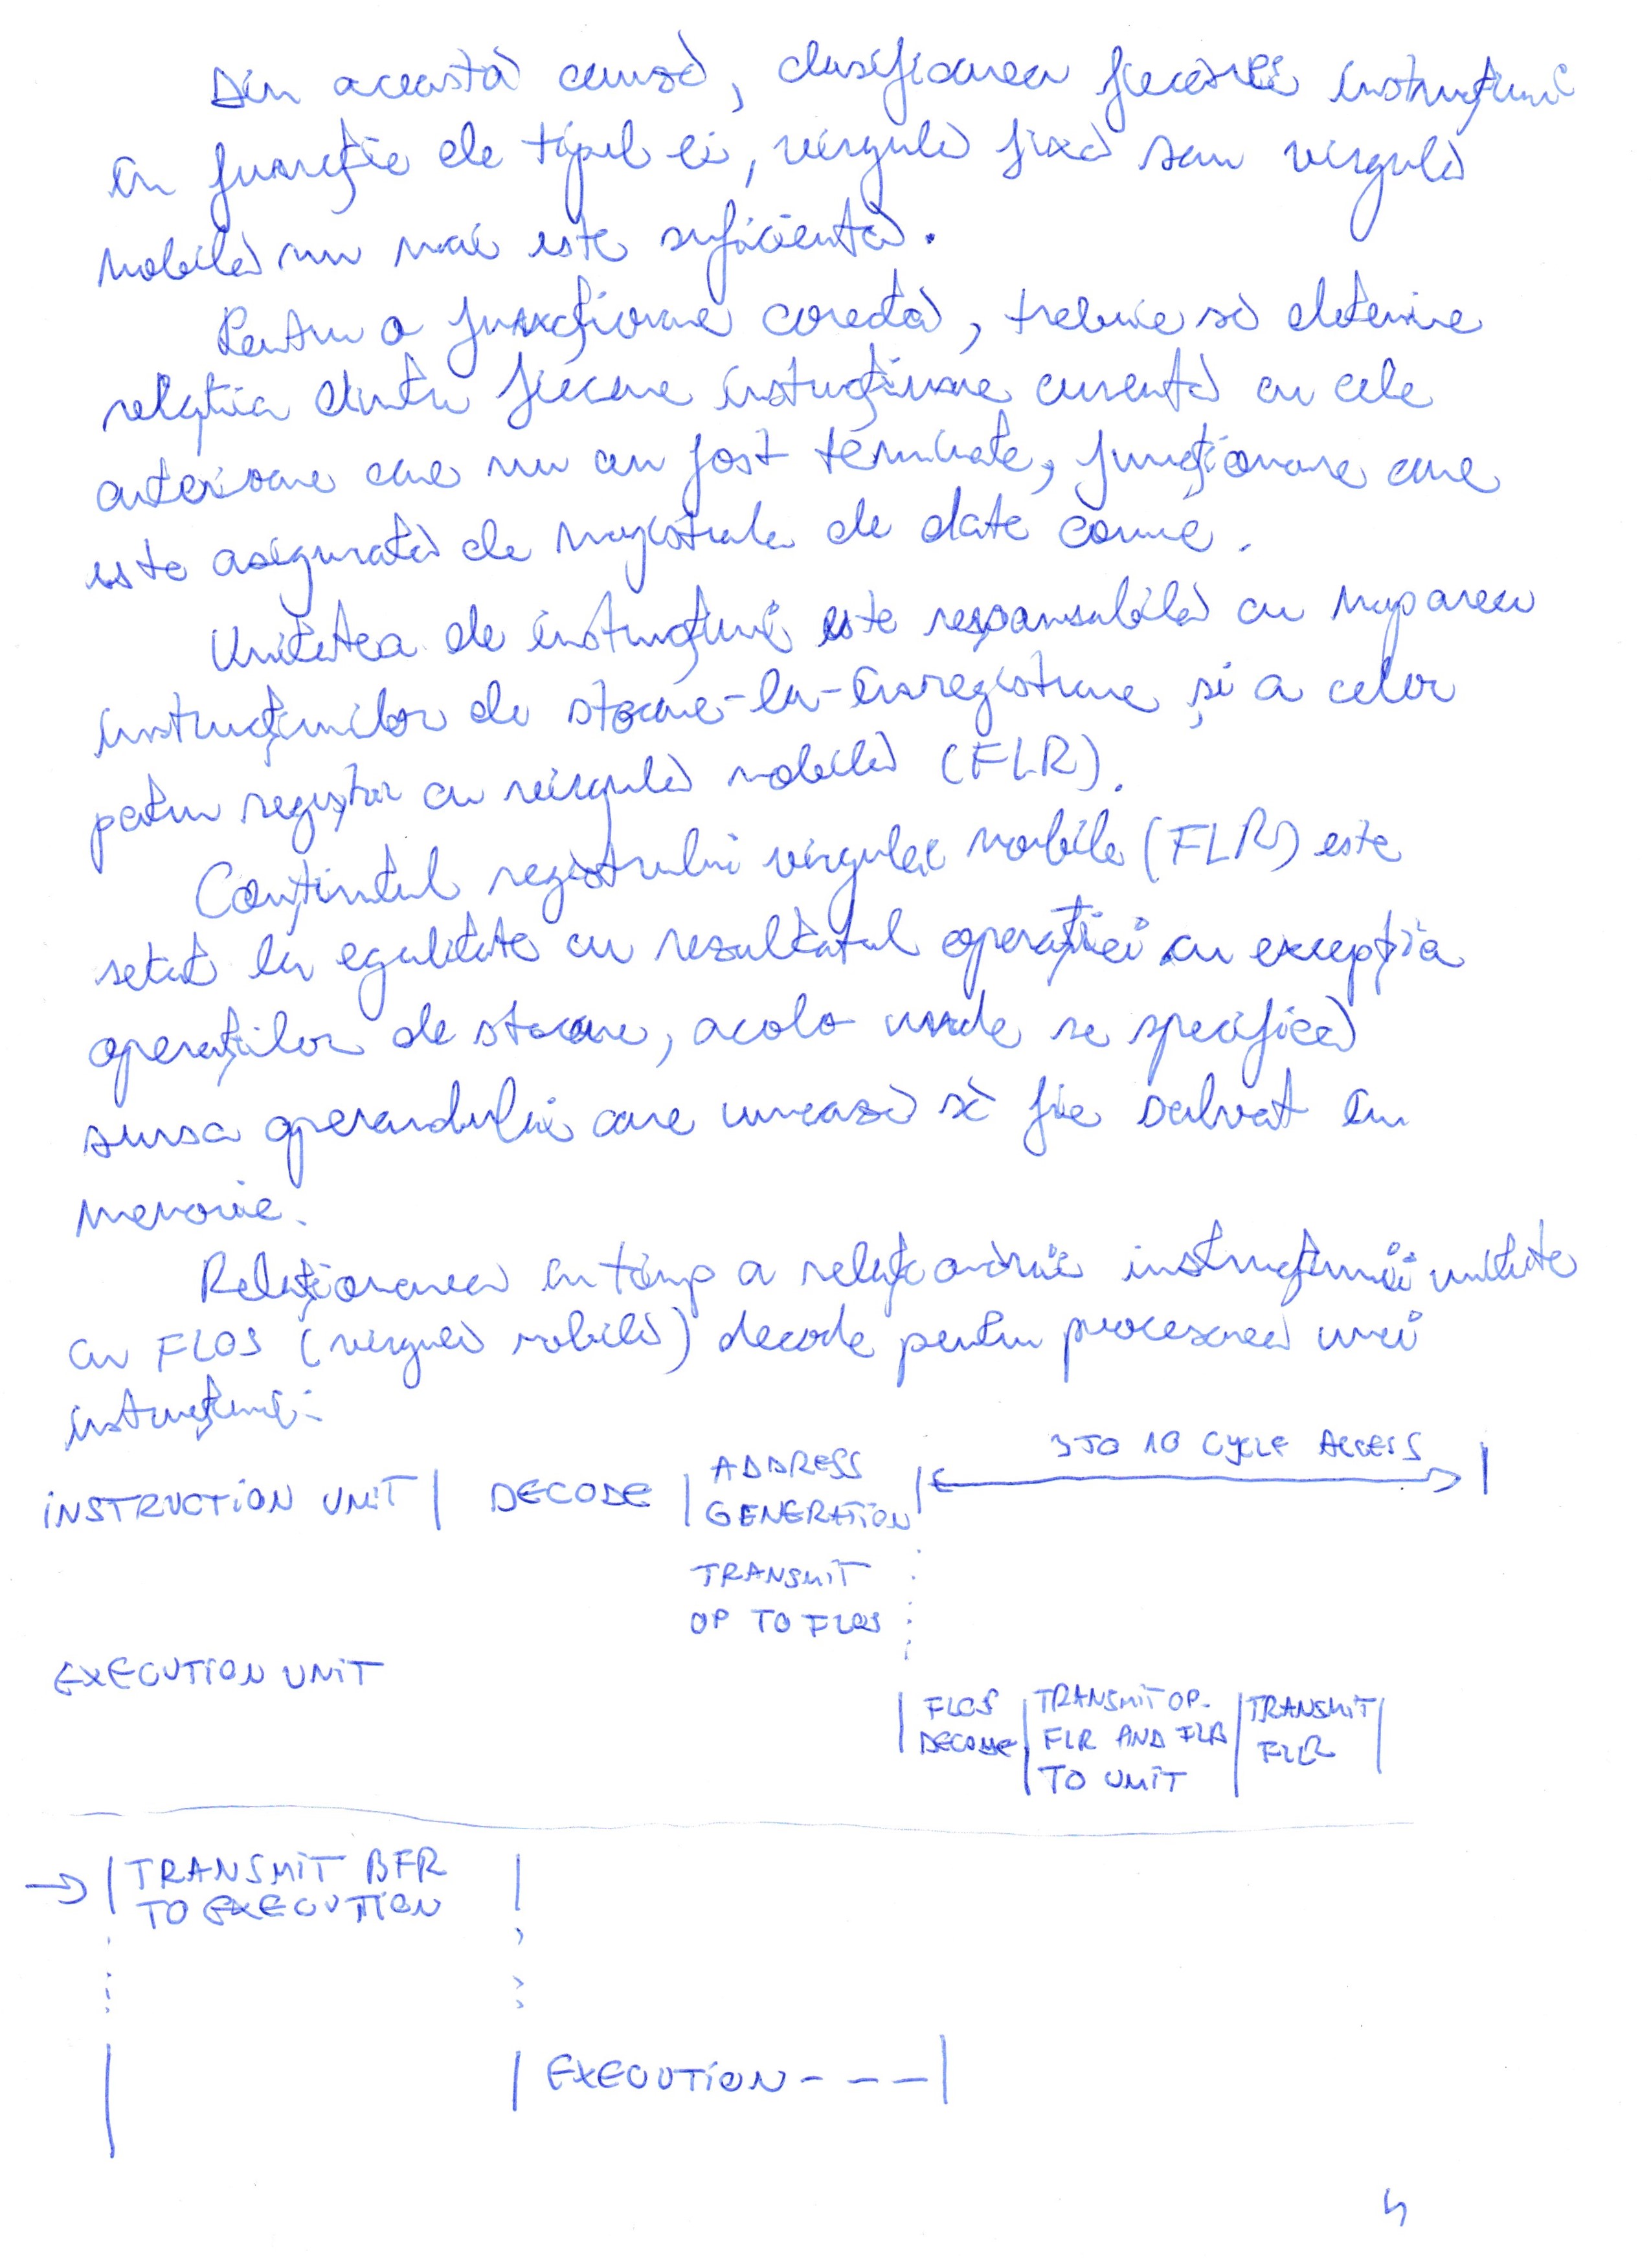 Din această cauză, clasificarea fiecărei instrucțiuni
în funcție de tipul ei, virgulă fixă sau virgulă
mobilă nu mai este suficientă.
Pentru o funcționare corectă, trebuie să determine
relația dintre fiecare instrucțiune curentă cu cele
anterioare care nu au fost terminate, funcționare care
este asigurată de magistrala de date comune.
Unitatea de instrucțiuni este responsabilă cu maparea
instrucțiunilor de stocare-la-înregistrare și a celor
pentru regiștrii cu virgulă mobilă (FLR).
Conținutul registrului virgulei mobile (FLR) este
setat la egalitate cu rezultatul operației cu excepția
operațiilor de stocare, acolo unde se specifică
sursa operandului care urmează să fie salvat în
memorie.
Relaționarea în timp a relaționării instrucțiunii unitate
cu FLOS (virgulă mobilă) decode pentru procesarea unei
instrucțiuni:
3 TO 10 CYCLE ACCESS
INSTRUCTION UNIT | DECODE | ADDRESS
GENERATION
TRANSMIT
OP TO FLOS
EXECUTION UNIT
| FLOS | TRANSMIT OP. | TRANSMIT |
DECODE FLR AND FLB FLR
TO UNIT
→ | TRANSMIT BFR |
TO EXECUTION
| EXECUTION - - - |